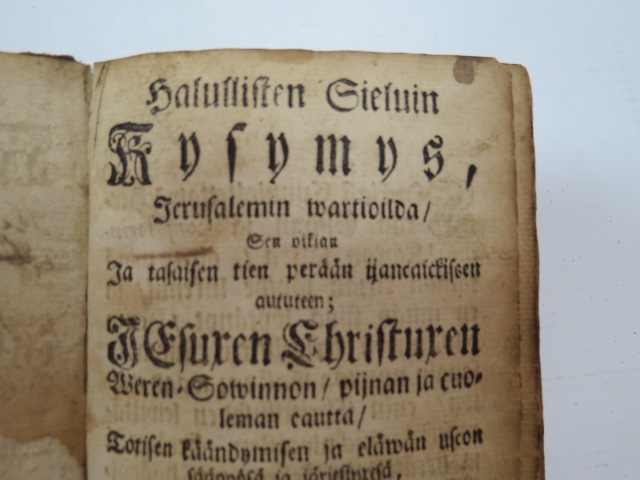 Halullisten Sieluin
Kysymys,
Jerusalemin wartioilda/
Sen oikian
Ja tasaisen tien perään ijancaickiseen
aututeen;
JEsuxen Christuxen
Weren-Sowinnon/ pijnan ja cuo-
leman cautta/
Totisen käändymisen ja eläwän uscon
säänyösä ja järjestyxesä,